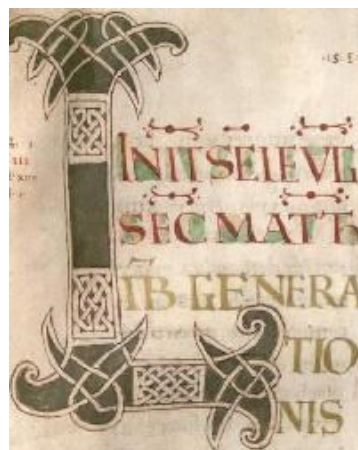 INITSEIEVG
SECMATTH
LIB GENERA
TIO
NIS